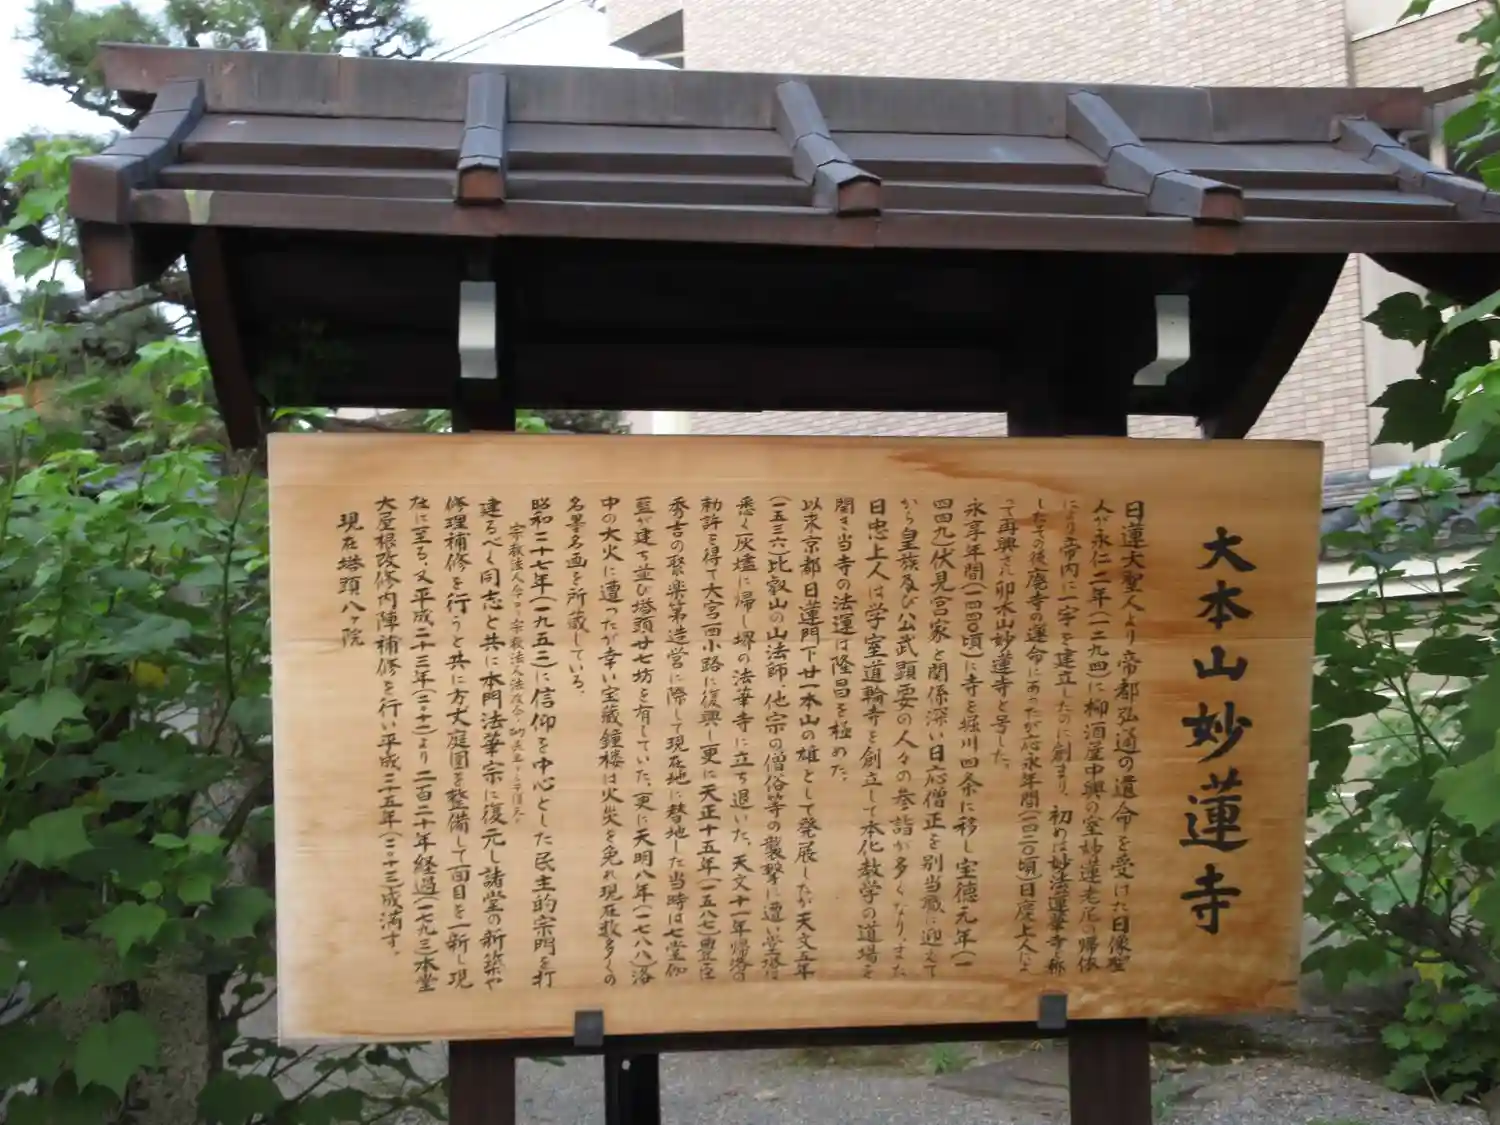 大本山妙蓮寺
日蓮大聖人より帝都弘通の遺命を受けた日像聖
人が永仁二年(一二九四)に柳酒屋中興の室妙蓮老尼の帰依
により帝内に一宇を建立したのに創まり、初めは妙法蓮華寺と称
したその後廃寺の運命にあったが応永年間(一四二〇頃)日慶上人によ
って再興され卯木山妙蓮寺と号した。
永享年間(一四四〇頃)に寺を堀川四条に移し宝徳元年(一
四四九)伏見宮家と関係深い日応僧正を別当職に迎えて
から皇族及び公武顕要の人々の参詣が多くなり、また
日忠上人は学室道輪寺を創立して本化教学の道場を
開き当寺の法運は隆昌を極めた。
以来京都日蓮門下廿一本山の雄として発展したが天文五年
(一五三六)比叡山の山法師、他宗の僧俗等の襲撃に遭い堂塔は
悉く灰燼に帰し堺の法華寺に立ち退いた。天文十一年帰洛の
勅許を得て大宮西小路に復興し更に天正十五年(一五八七)豊臣
秀吉の聚楽第造営に際して現在地に替地した当時は七堂伽
藍が建ち並び塔頭廿七坊を有していた。更に天明八年(一七八八)洛
中の大火に遭ったが幸い宝蔵鐘楼は火災を免れ現在数多くの
名墨名画を所蔵している。
昭和二十七年(一九五二)に信仰を中心とした民主的宗門を打
建るべく同志と共に本門法華宗に復元し諸堂の新築や
修理補修を行うと共に方丈庭園を整備して面目を一新し現
在に至る。又平成二十三年(二〇十一)より二百二十年経過(一七九三)本堂
大屋根改修内陣補修を行い平成二十五年(二〇十三)成満す。
現在塔頭八ヶ院